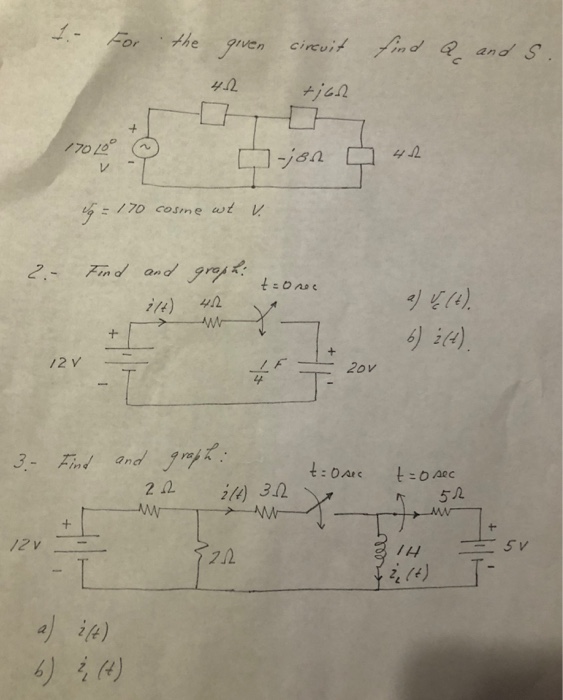 1.- For the given circuit find Qc and S.
4Ω
+j6Ω
170∠0°
V
+
~
-
-j8Ω
4Ω
vg = 170 cosine wt V.
2.- Find and graph:
t=0 sec
i(t) 4Ω
a) vc(t).
b) i(t).
+
12V
-
1/4 F
+
20V
-
3.- Find and graph:
t=0 sec
t=0 sec
2Ω
i(t) 3Ω
5Ω
+
12V
-
2Ω
1H
iL(t)
+
5V
-
a) i(t)
b) iL(t)